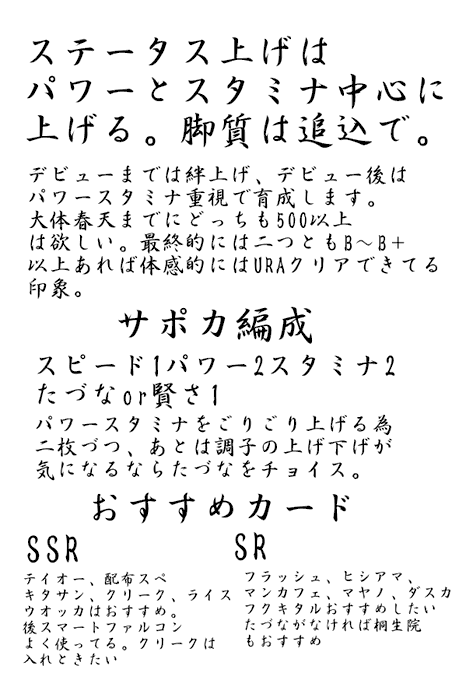 ステータス上げは
パワーとスタミナ中心に
上げる。脚質は追込で。
デビューまでは絆上げ、デビュー後は
パワースタミナ重視で育成します。
大体春天までにどっちも500以上
は欲しい。最終的には二つともB～B+
以上あれば体感的にはURAクリアできてる
印象。
サポカ編成
スピード1パワー2スタミナ2
たづなor賢さ1
パワースタミナをごりごり上げる為
二枚づつ、あとは調子の上げ下げが
気になるならたづなをチョイス。
おすすめカード
SSR
テイオー、配布スペ
キタサン、クリーク、ライス
ウオッカはおすすめ。
後スマートファルコン
よく使ってる。クリークは
入れときたい
SR
フラッシュ、ヒシアマ、
マンカフェ、マヤノ、ダスカ
フクキタルおすすめしたい
たづながなければ桐生院
もおすすめ